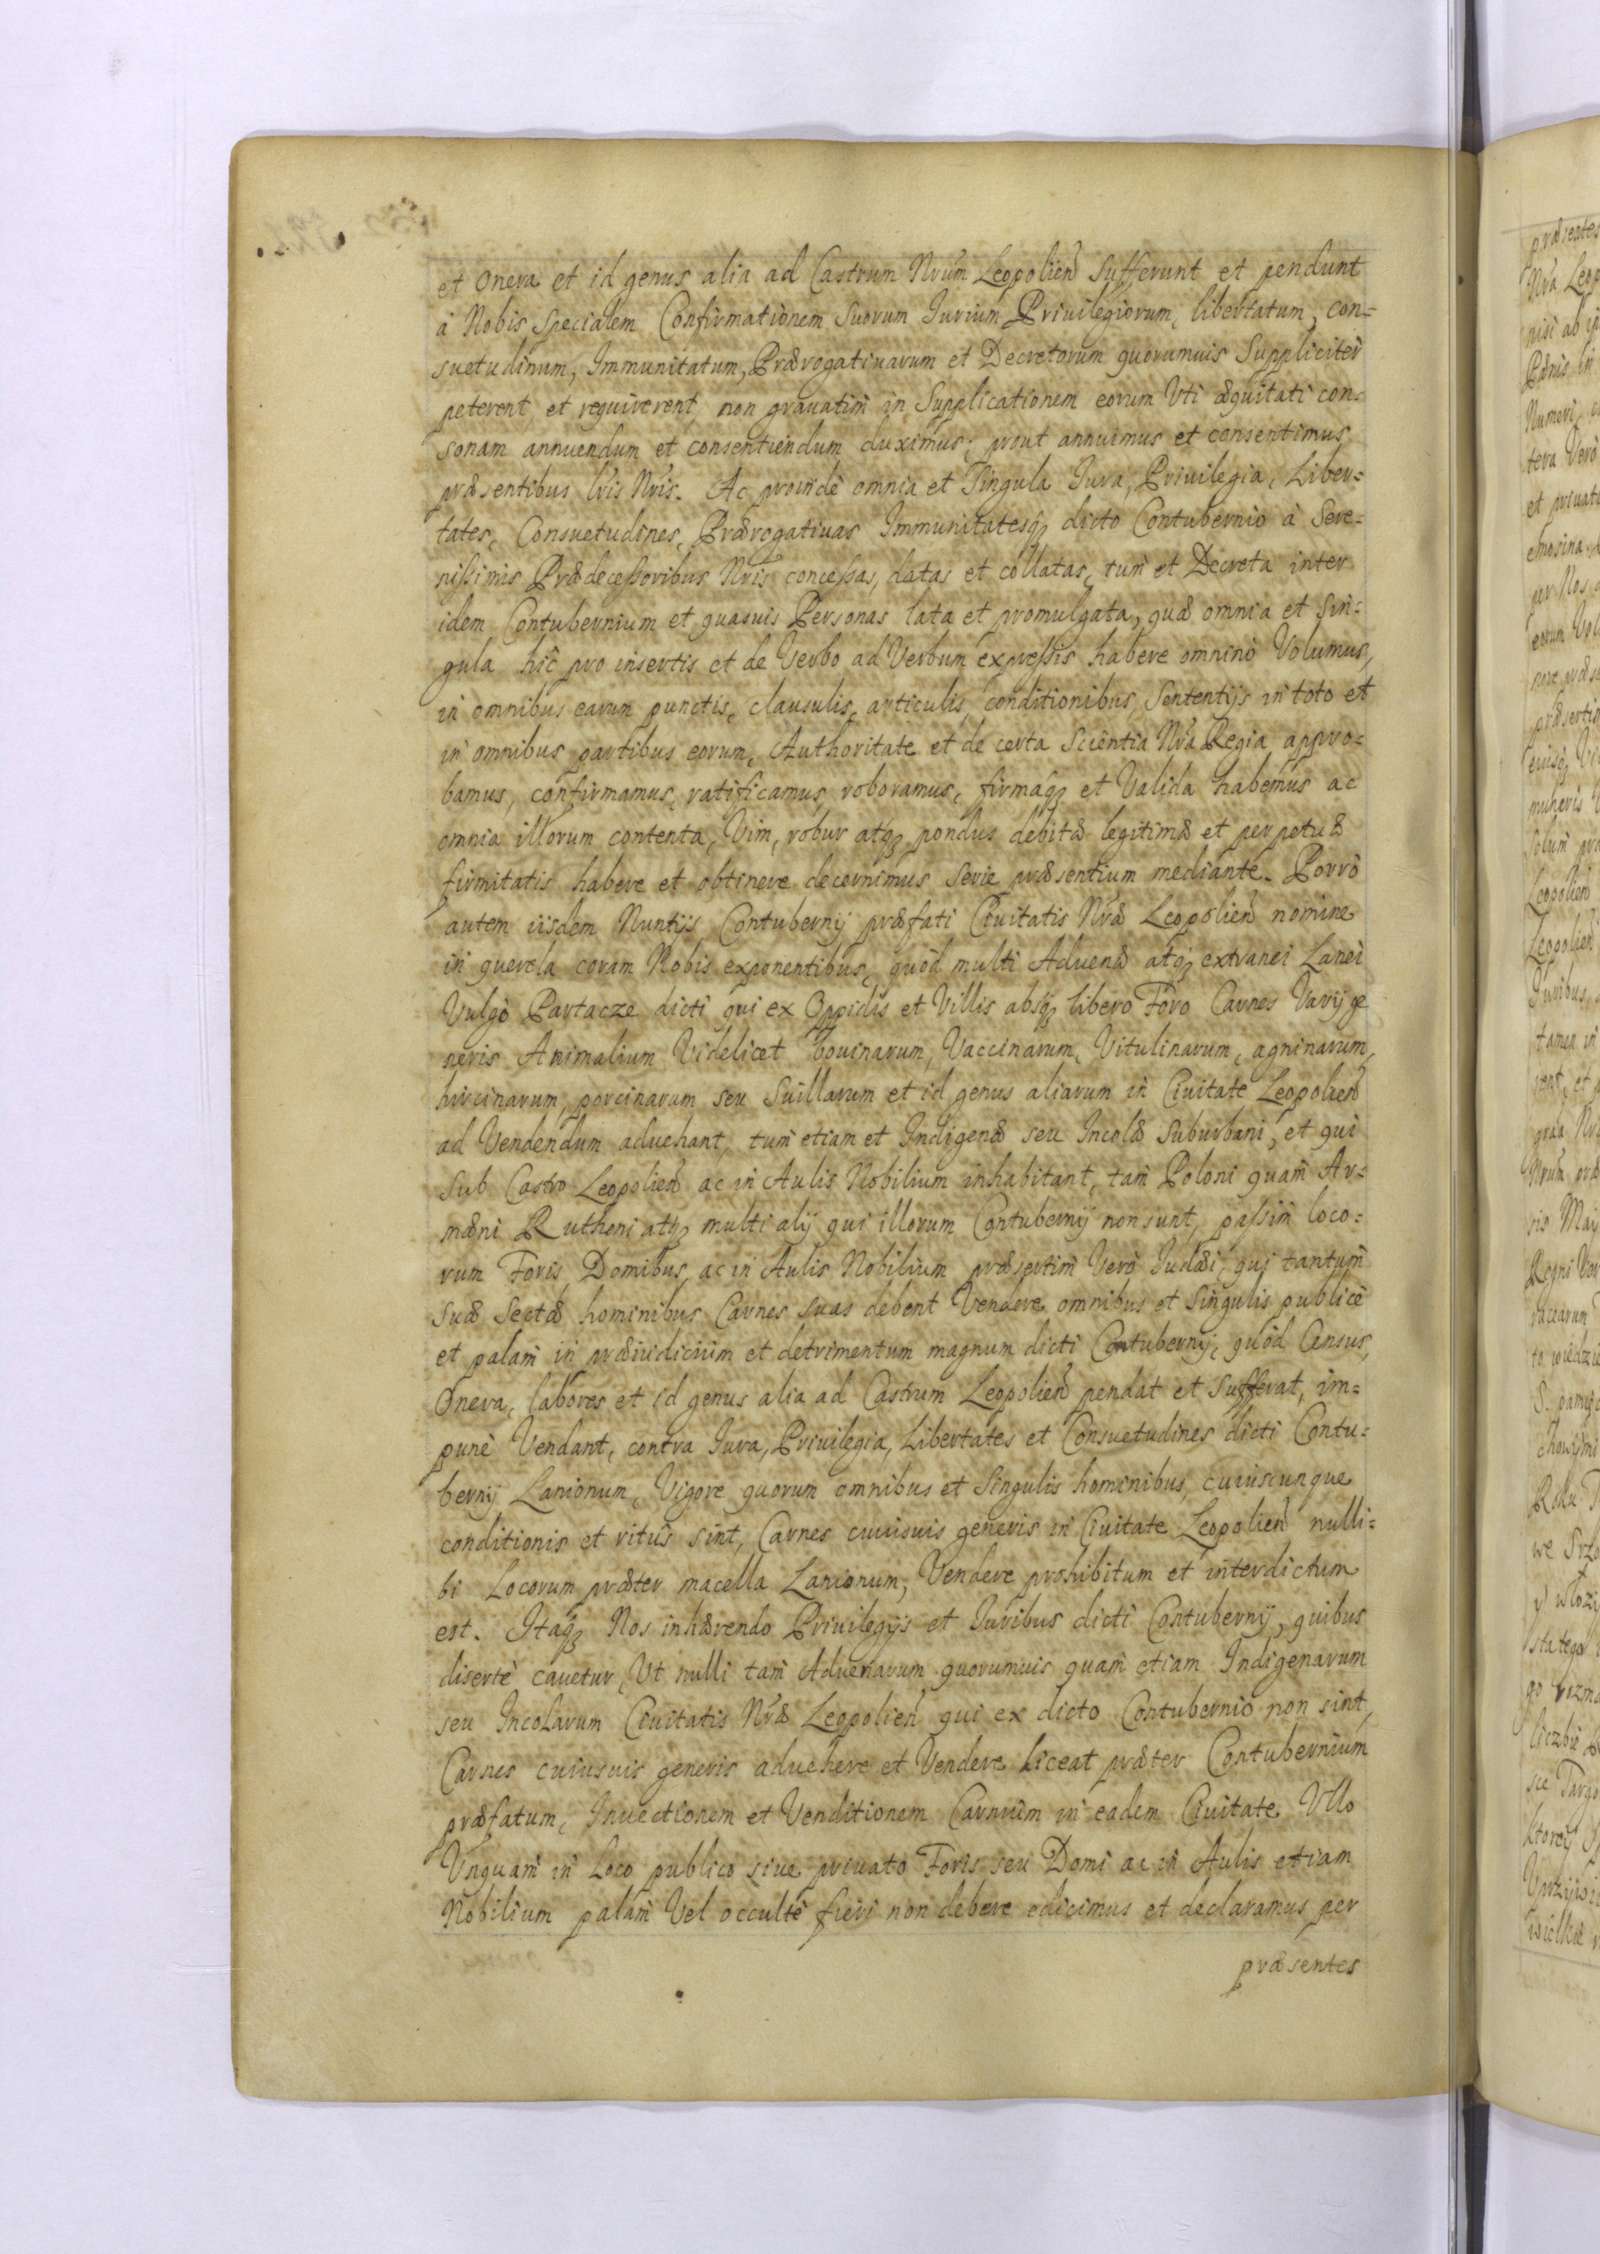 et onera et id genus alia ad Castrum Nrum Leopolien sufferunt et pendunt
à Nobis specialem Confirmationem suorum Iurium Priuilegiorum, libertatum, con=
suetudinum, Immunitatum, Prærogatiuarum et Decretorum quorumuis suppliciter
peterent et requirerent, non grauatim in Supplicationem eorum Uti æquitati con=
sonam annuendum et consentiendum duximus; prout annuimus et consentimus
præsentibus lris Nris. Ac proinde omnia et Singula Iura, Priuilegia, Liber=
tates, Consuetudines, Prærogatiuas Immunitatesq dicto Contubernio à Sere=
nissimis Prædecessoribus Nris concessas, datas et collatas, tum et Decreta inter
idem Contubernium et quasuis Personas lata et promulgata, quæ omnia et Sin=
gula hic pro insertis et de Verbo ad Verbum expressis habere omninò Volumus,
in omnibus earum punctis, clausulis, articulis, conditionibus, Sententijs in toto et
in omnibus partibus eorum, Authoritate et de certa Scientia Nra Regia appro=
bamus, confirmamus, ratificamus, roboramus, firmaq et Valida habemus ac
omnia illorum contenta, Vim, robur atq pondus debitæ legitimæ et perpetuæ
firmitatis habere et obtinere decernimus serie præsentium mediante. Porrò
autem iisdem Nuntijs Contubernij præfati Ciuitatis Nræ Leopolien nomine
in querela coram Nobis exponentibus, quòd multi Aduenæ atq extranei Lanei
Vulgò Partacze dicti qui ex Oppidis et Villis absq libero Foro Carnes Varij ge
neris Animalium Videlicet bouinarum, Vaccinarum, Vitulinarum, agninarum,
hircinarum, porcinarum seu Suillarum et id genus aliarum in Ciuitate Leopolien
ad Vendendum aduehant, tum etiam et Indigenæ seu Incolæ Suburbani, et qui
sub Castro Leopolien ac in Aulis Nobilium inhabitant, tam Poloni quam Ar=
mæni Rutheni atq multi alij qui illorum Contubernij non sunt, passim loco=
rum Foris Domibus ac in Aulis Nobilium præsertim Verò Iudæi, qui tantum
suæ Sectæ hominibus Carnes suas debent Vendere omnibus et Singulis publicè
et palam in præiudicium et detrimentum magnum dicti Contubernij, quòd Census,
Onera, labores et id genus alia ad Castrum Leopolien pendat et sufferat, im=
punè Vendant, contra Iura, Priuilegia, Libertates et Consuetudines dicti Contu=
bernij Lanionum, Vigore quorum omnibus et Singulis hominibus, cuiuscunque
conditionis et ritus sint, Carnes cuiusuis generis in Ciuitate Leopolien nulli=
bi Locorum præter macella Lanionum, Vendere prohibitum et interdictum
est. Itaq Nos inhærendo Priuilegijs et Iuribus dicti Contubernij, quibus
disertè cauetur, Ut nulli tam Aduenarum quorumuis quam etiam Indigenarum
seu Incolarum Ciuitatis Nræ Leopolien qui ex dicto Contubernio non sint,
Carnes cuiusuis generis aduehere et Vendere liceat præter Contubernium
præfatum, Inuectionem et Venditionem Carnium in eadem Ciuitate Ullo
Unquam in Loco publico siue priuato Foris seu Domi ac in Aulis etiam
Nobilium palam Vel occultè fieri non debere edicimus et declaramus per
præsentes